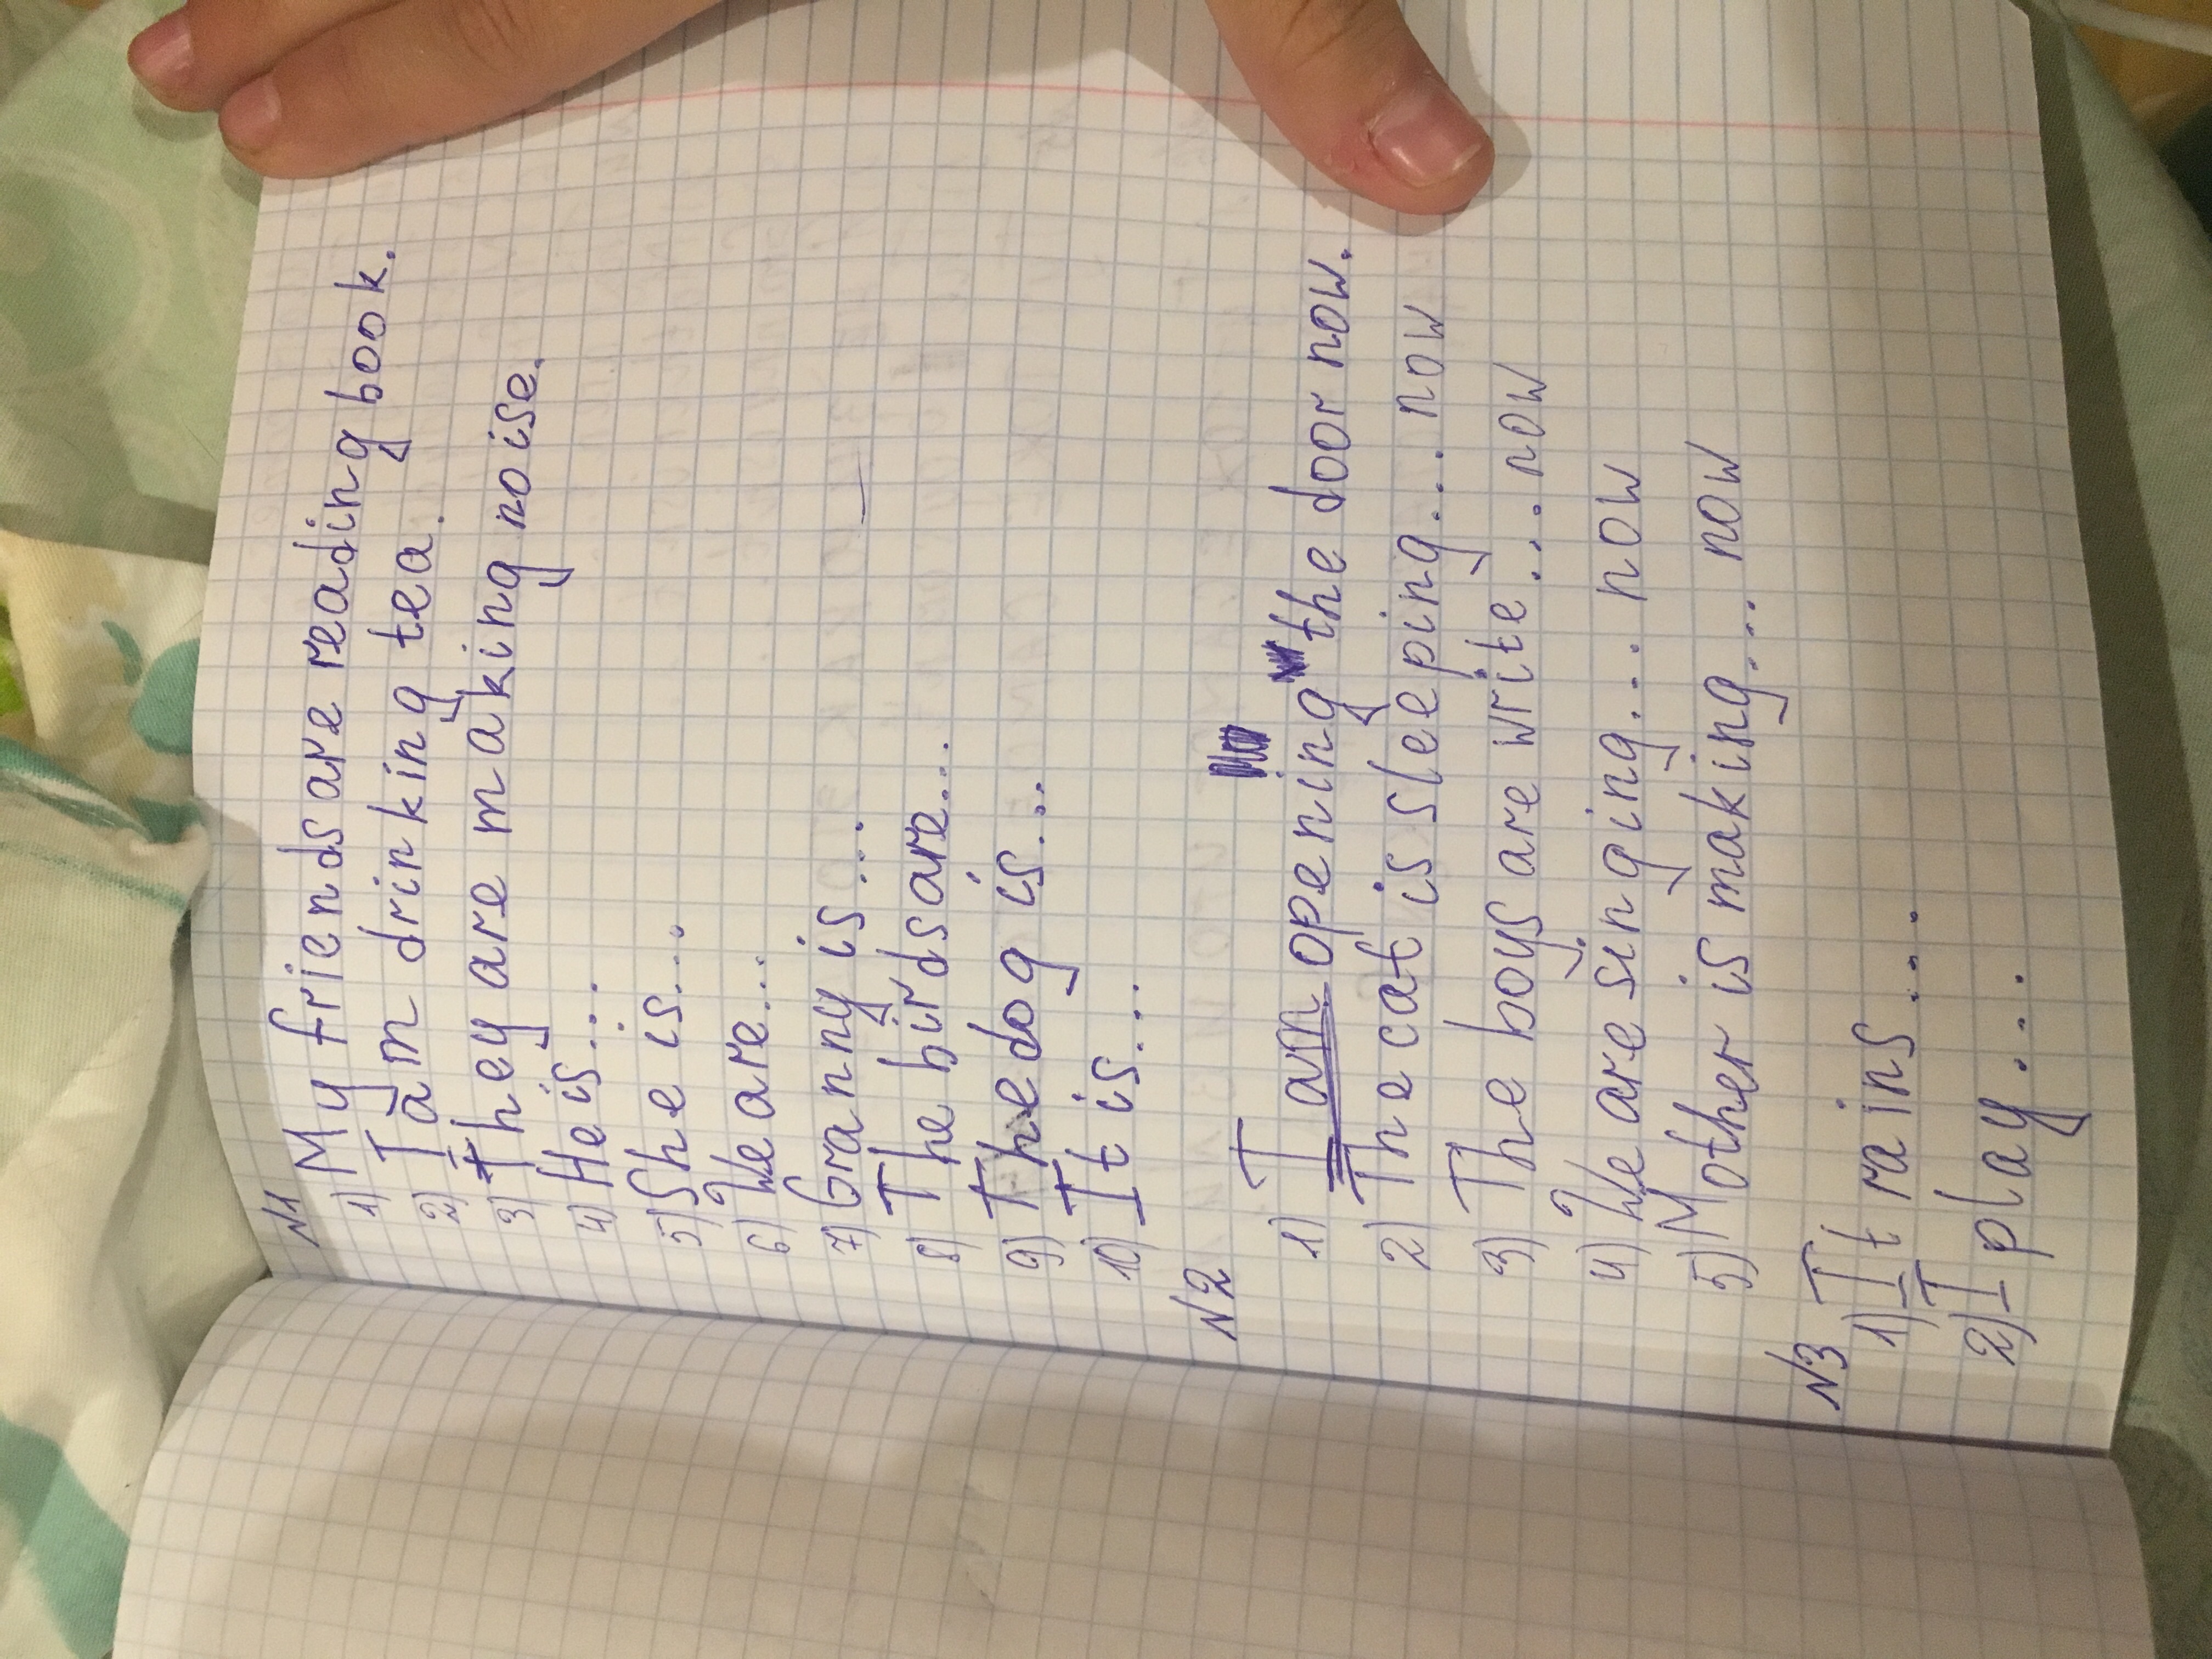 N1
1) My friends are reading book.
2) I am drinking tea.
3) They are making noise.
4) He is...
5) She is...
6) We are...
7) Granny is...
8) The birds are...
9) The dog is...
10) It is...
N2
1) I am opening the door now.
2) The cat is sleeping... now
3) The boys are write... now
4) We are singing... now
5) Mother is making... now
N3
1) It rains...
2) I play...